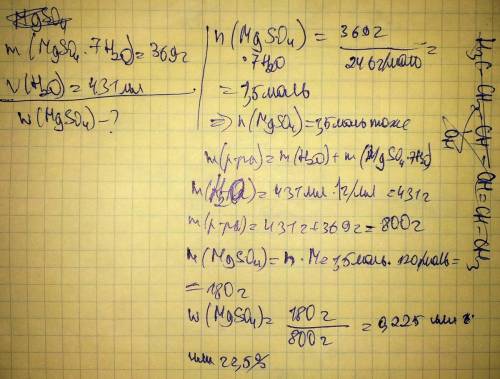 m(MgSO₄·7H₂O)=369г
V(H₂O)=431мл
w(MgSO₄)-?
n(MgSO₄·7H₂O) = 369г/246г/моль =
= 1,5моль
=> n(MgSO₄)=1,5моль тоже
m(р-ра)=m(H₂O)+m(MgSO₄·7H₂O)
m(H₂O)=431мл·1г/мл=431г
m(р-ра)=431г+369г=800г
m(MgSO₄)=n·M=1,5моль·120г/моль=
=180г
w(MgSO₄)= 180г/800г =0,225 или
или 22,5%
OH